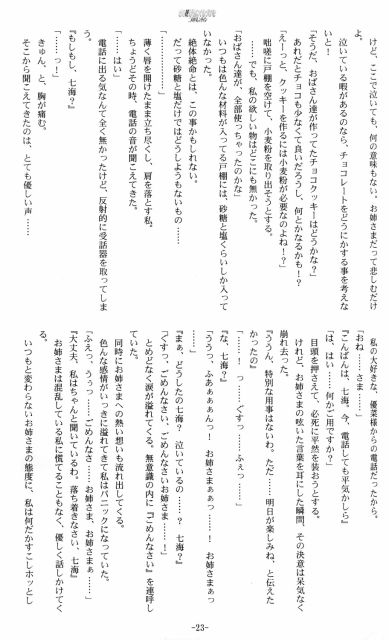 けど、ここで泣いても、何の意味もない。お姉さまだって悲しむだけ
よ。
泣いている暇があるのなら、チョコレートをどうにかする事を考えな
いと！
「そうだ、おばさん達が作ってたチョコクッキーはどうかな？」
あれだとチョコも少なくて良いだろうし、何とかなるかも！？
「えーっと、クッキーを作るには小麦粉が必要なのよね！？」
咄嗟に戸棚を空けて、小麦粉を取り出そうとする。
……でも、私の欲しい物はどこにも無かった。
「おばさん達が、全部使っちゃったのかな」
いつもは色んな材料が入ってる戸棚には、砂糖と塩くらいしか入って
いなかった。
絶体絶命とは、この事かもしれない。
だって砂糖と塩だけではどうしようもないもの……
「…………」
薄く唇を開けたまま立ち尽くし、肩を落とす私。
ちょうどその時、電話の音が聞こえてきた。
「……はい」
電話に出る気なんて全く無かったけど、反射的に受話器を取ってしま
う。
『もしもし、七海？』
「……っ！」
きゅん、と、胸が痛む。
そこから聞こえてきたのは、とても優しい声……
私の大好きな、優菜様からの電話だったから。
「おね……さま……」
『こんばんは、七海。今、電話しても平気かしら』
「は、はい……何かご用ですか？」
目頭を押さえて、必死に平然を装おうとする。
けれど、お姉さまの呟いた言葉を耳にした瞬間、その決意は呆気なく
崩れ去った。
『ううん、特別な用事はないわ。ただ……明日が楽しみね、と伝えた
かったの』
「……！　っ……ぐすっ……ふぇっ……」
『な、七海？』
「ううっ、ふあぁぁぁんっ　お姉さまぁぁっ……！　お姉さまぁっ
……」
『まぁ、どうしたの七海？　泣いているの……？　七海？』
「ぐすっ、ごめんなさい、ごめんなさいお姉さま……！」
とめどなく涙が溢れてくる。無意識の内に『ごめんなさい』を連呼し
ていた。
同時にお姉さまへの熱い想いも流れ出してくる。
色んな感情がいっきに溢れてきて私はパニックになっていた。
「ふえっ、うぅっ……ごめんなさ……お姉さま、お姉さまぁ……」
『大丈夫、私はちゃんと聞いているわ。落ち着きなさい、七海』
お姉さまは混乱している私に慌てることもなく、優しく話しかけてく
る。
いつもと変わらないお姉さまの態度に、私は何だかすこしホッとし
-23-